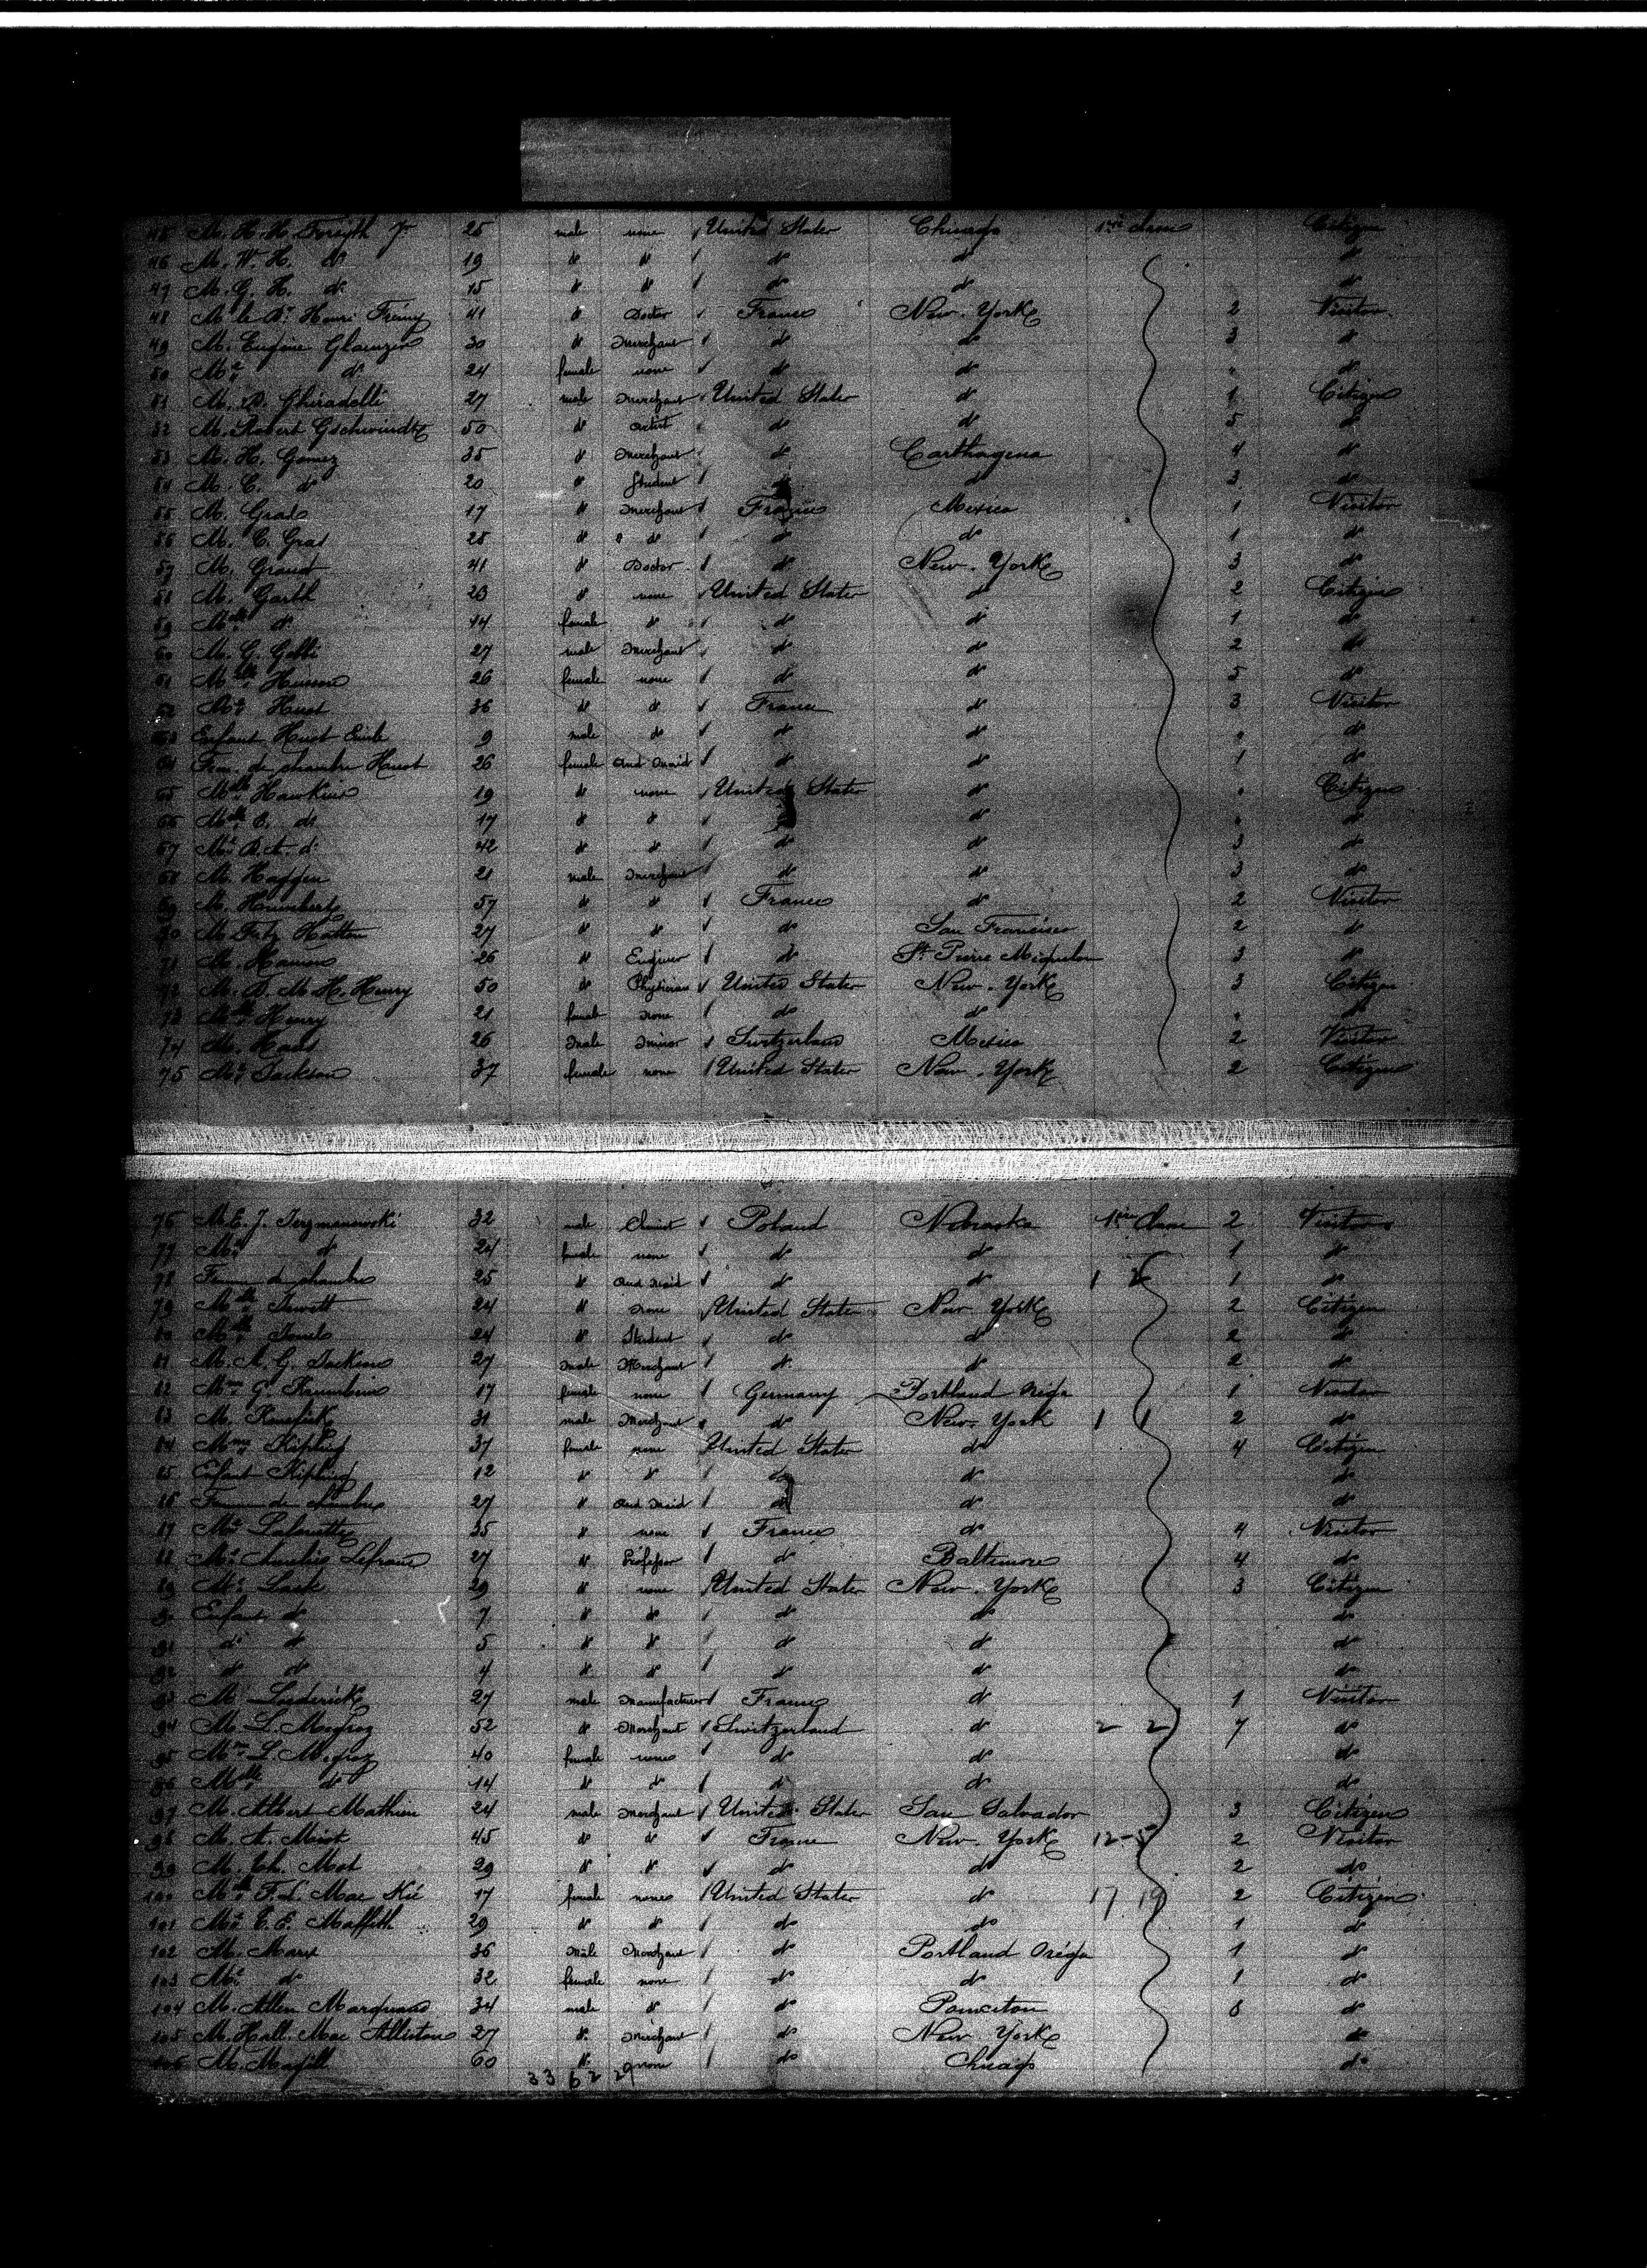 45 M. H. H. Forsyth Jr 25 male none United States Chicago 1ère classe Citizen
46 M. W. H. do 19 do do do do do
47 M. G. H. do 15 do do do do do
48 Mr le Dr Henri Frémy 41 do Doctor France New-York 2 Visitor
49 M. Eugène Glaenzer 30 do Merchant do do 3 do
50 Me do 24 female none do do " do
51 M. D. Ghiradelli 27 male Merchant United States do 1 Citizen
52 M. Robert Gschwindt 50 do Artist do do 5 do
53 M. H. Gomez 35 do Merchant do Carthagena 4 do
54 M. C. do 20 do Student do do 3 do
55 M. Gras 17 do Merchant France Mexico 1 Visitor
56 M. C. Gras 25 do do do do 1 do
57 M. Graud 41 do Doctor do New-York 3 do
58 M. Garth 23 do none United States do 2 Citizen
59 Melle do 44 female do do do 1 do
60 M. G. Galli 27 male Merchant do do 2 do
61 Melle Husson 26 female none do do 5 do
62 Me Huot 36 do do France do 3 Visitor
63 Enfant Huot Emile 9 male do do do " do
64 Fem. de chambre Huot 26 female and maid do do 1 do
65 Melle Hawkins 19 do none United States do " Citizen
66 Melle E. do 17 do do do do " do
67 Me B. A. do 42 do do do do 3 do
68 M. Haggen 21 male Merchant do do 3 do
69 M. Hommberg 57 do do France do 2 Visitor
70 M. Fritz Hatton 27 do do do San Francisco 2 do
71 M. Hamon 26 do Engineer do St Pierre Miquelon 3 do
72 M. D. M. H. Henry 50 do Physician United States New-York 3 Citizen
73 Melle Henry 21 female none do do " do
74 M. Haas 26 male Minor Switzerland Mexico 2 Visitor
75 Me Jackson 37 female none United States New-York 2 Citizen
76 M. E. J. Jerzmanowski 32 male Chimist Poland Nebraska 1ère classe 2 Visitor
77 Me do 24 female none do do 1 do
78 Femme de chambre 25 do and maid do do 1 do
79 Melle Jewett 24 do none United States New York 2 Citizen
80 Melle Jones 24 do Student do do 2 do
81 M. A. G. Jackins 27 male Merchant do do 2 do
82 Mme G. Krumbein 17 female none Germany Portland Oregn 1 Visitor
83 M. Kenefick 31 male Merchant do New-York 1 1 2 do
84 Mme Kipling 37 female none United States do 4 Citizen
85 Enfant Kipling 12 do do do do do
86 Femme de chambre 27 do and maid do do do
87 Me Lalouette 35 do none France do 4 Visitor
88 Me Amelie Lefranc 27 do Professor do Baltimore 4 do
89 Me Lask 29 do none United States New-York 3 Citizen
90 Enfant do 7 do do do do do
91 do do 5 do do do do do
92 do do 4 do do do do do
93 M. Loderick 27 male Manufacturer France do 1 Visitor
94 M. L. Megroz 52 do Merchant Switzerland do 2 2 7 do
95 Mme L. Megroz 40 female none do do do
96 Melle do 14 do do do do do
97 M. Albert Mathieu 24 male Merchant United States San Salvador 3 Citizen
98 M. A. Miot 45 do do France New-York 12-5 2 Visitor
99 M. Ch. Mot 29 do do do do 2 do
100 Melle F. L. Mac Kie 17 female none United States do 17 19 2 Citizen
101 Me E. E. Maffitt 29 do do do do 1 do
102 M. Marx 36 male Merchant do Portland Orégn 1 do
103 Me do 32 female none do do 1 do
104 M. Allen Marquand 34 male do do Princeton 8 do
105 M. Hall Mac Allister 27 do Merchant do New-York do
106 M. Magill 60 do none do Chicago do
33 62 29